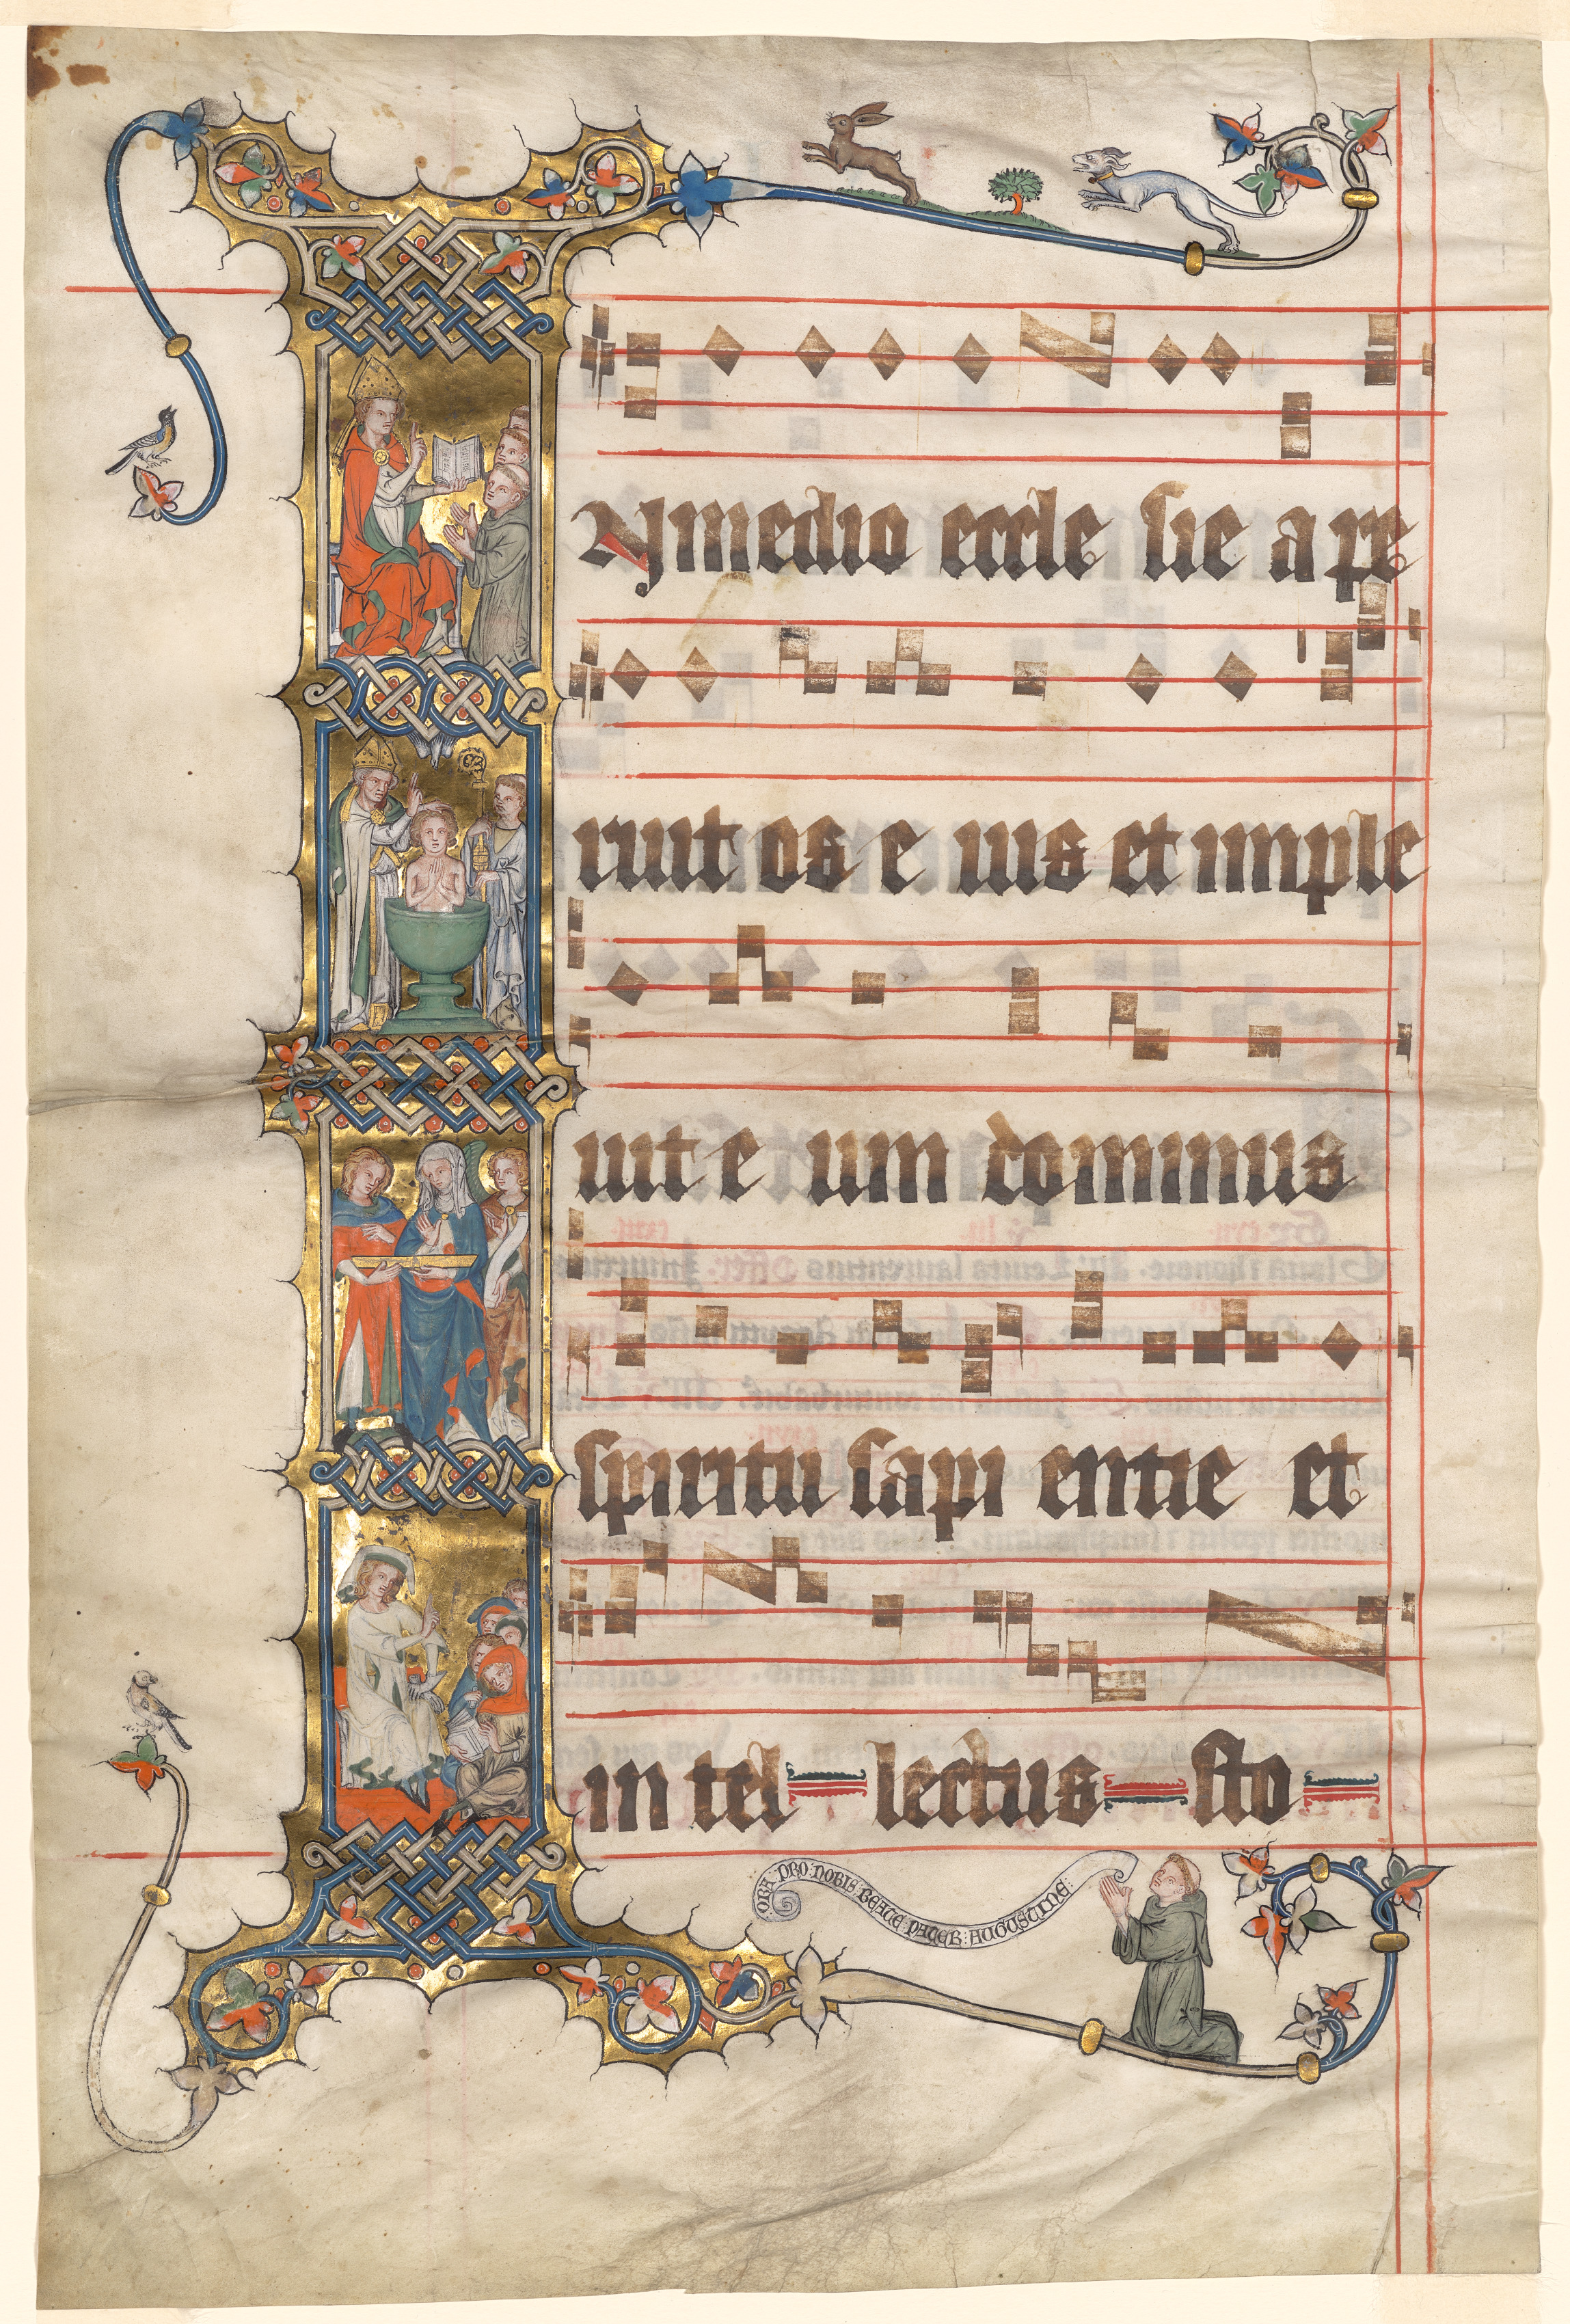 In medio eccle sie a pe
ruit os e ius et imple
uit e um dominus
spiritu sapi entie et
in tel lectus sto
ORA PRO NOBIS BEATE PATER AUGUSTINE